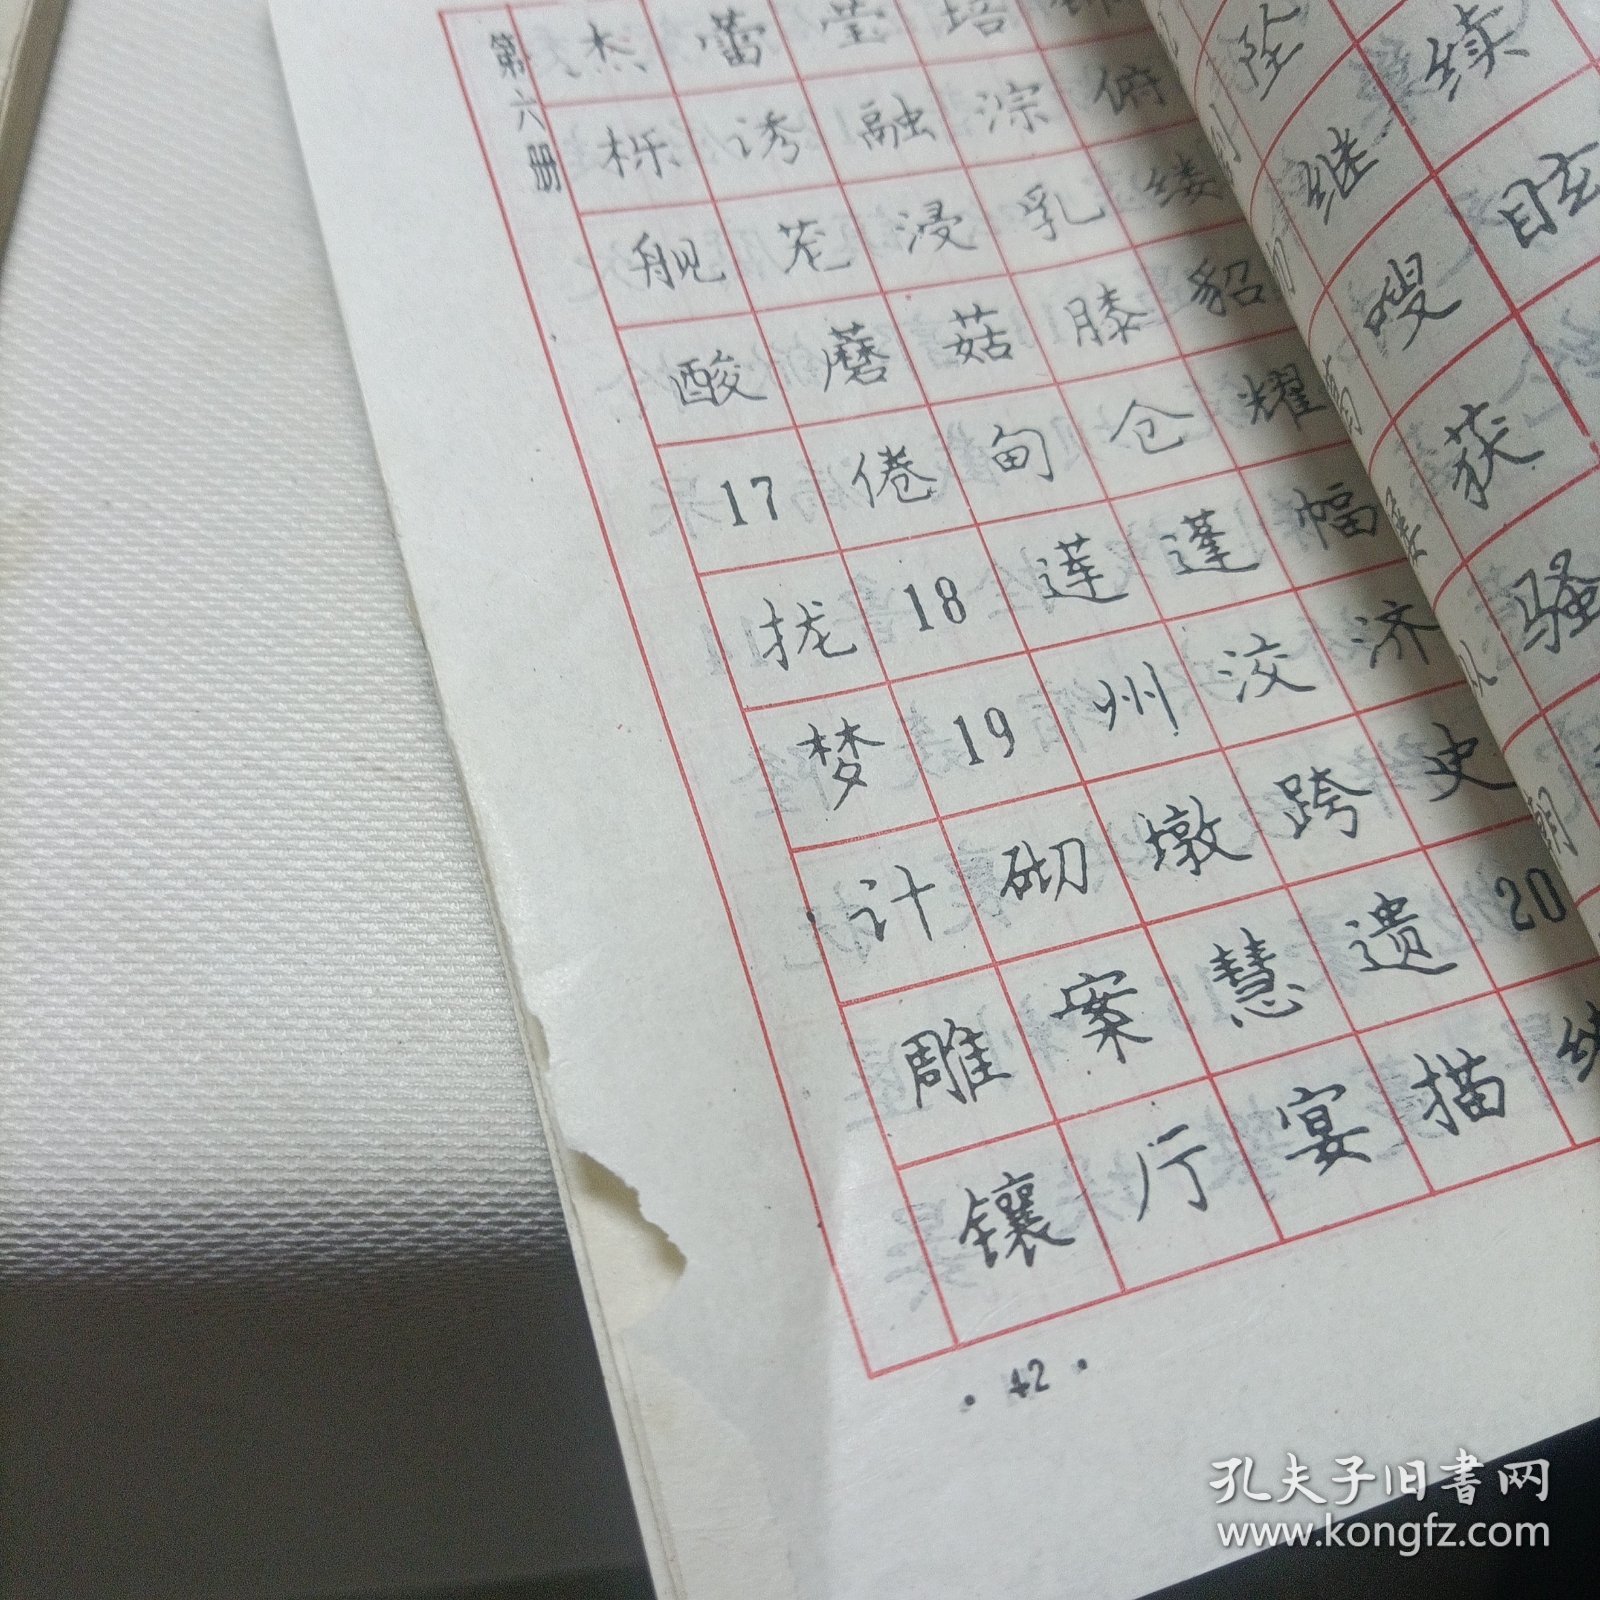 第六册
杰 蕾 莹 培
栎 诱 融 淙 俯
舰 苍 浸 乳 缕
酸 蘑 菇 膝 貂
17 倦 甸 仓 耀
拢 18 莲 蓬 幅
梦 19 州 洨 济
计 砌 墩 跨 史
雕 案 慧 遗 20
镶 厅 宴 描
·42·
坠 续
继 眩
嗖
获
骚
朝
孔夫子旧书网
www.kongfz.com